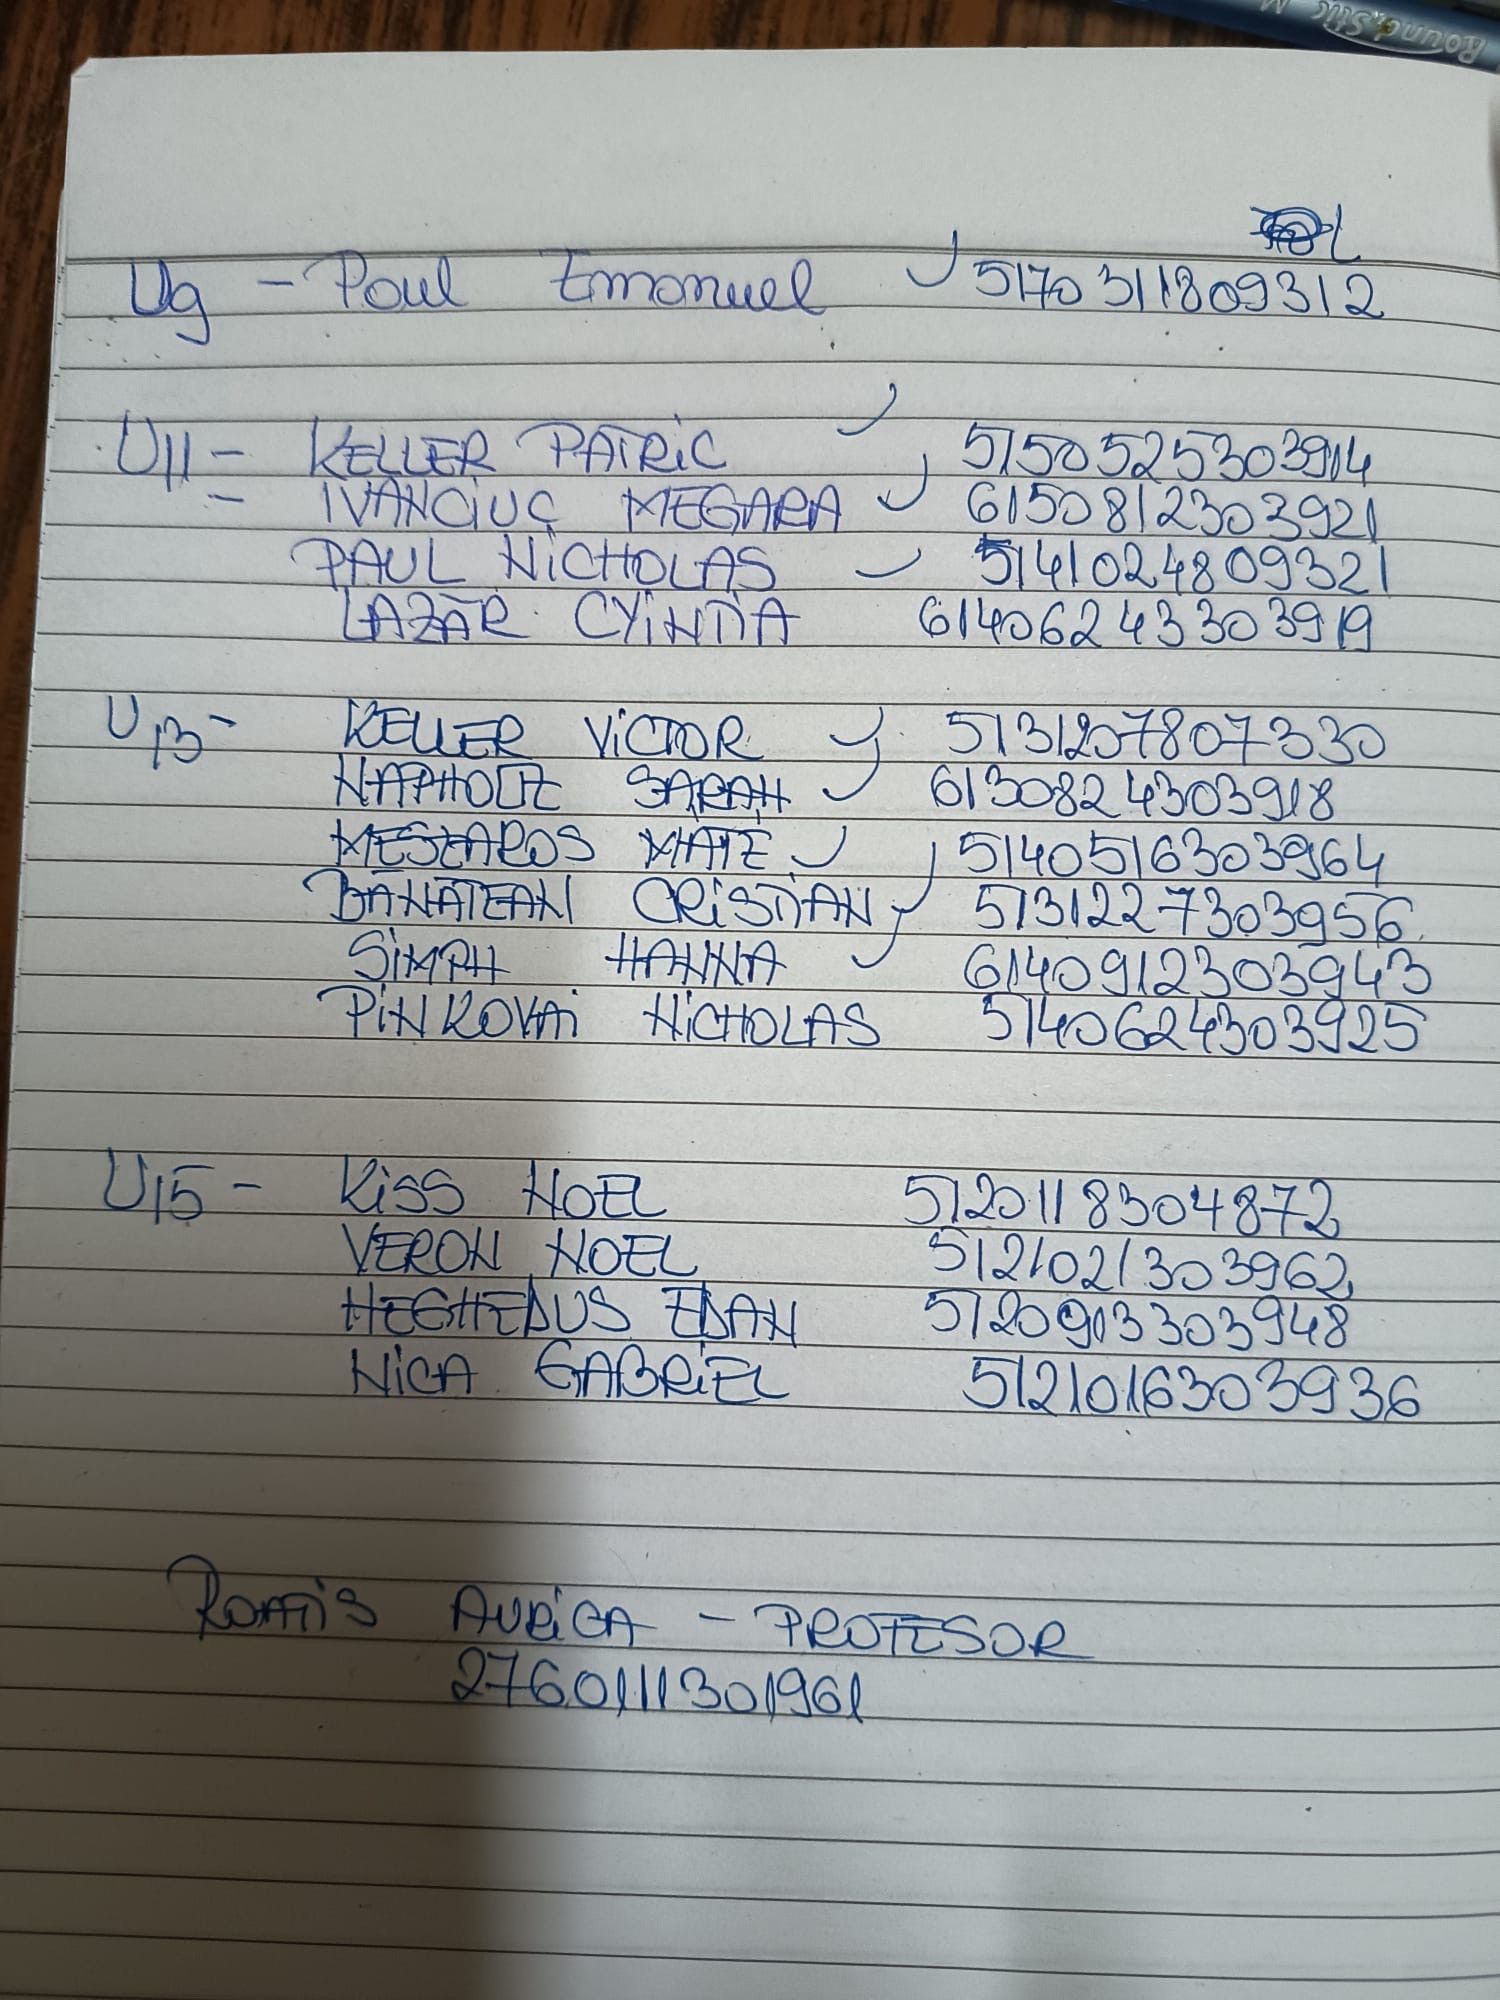 Round Stic M
U9 - Paul Emanuel 5170311809312
U11 - KELLER PATRIC 5150525303914
- IVANCIUC MEGARA 6150812303921
PAUL NICHOLAS 5141024809321
LAZĂR CYINTIA 614062433303919
U13 - KELLER VICTOR 5131207807330
NAPHOLTZ SARAH 6130824303918
MESZAROS MATE 5140516303964
BĂNĂTEAN CRISTIAN 5131227303956
SIMPH HANNA 6140912303943
PINKOVAI NICHOLAS 5140624303925
U15 - KISS NOEL 5120118304872
VERON NOEL 5121021303962
HEGHEDUS EDAN 5120913303948
NICA GABRIEL 5121016303936
AURICA - PROFESOR
2760111301961